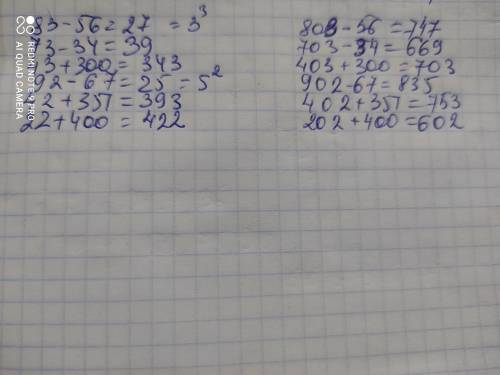 83-56=27 =3³
73-34=39
43+300=343
92-67=25=5²
42+351=393
22+400=422
803-56=747
703-34=669
403+300=703
902-67=835
402+351=753
202+400=602
REDMI NOTE 9 PRO
AI QUAD CAMERA